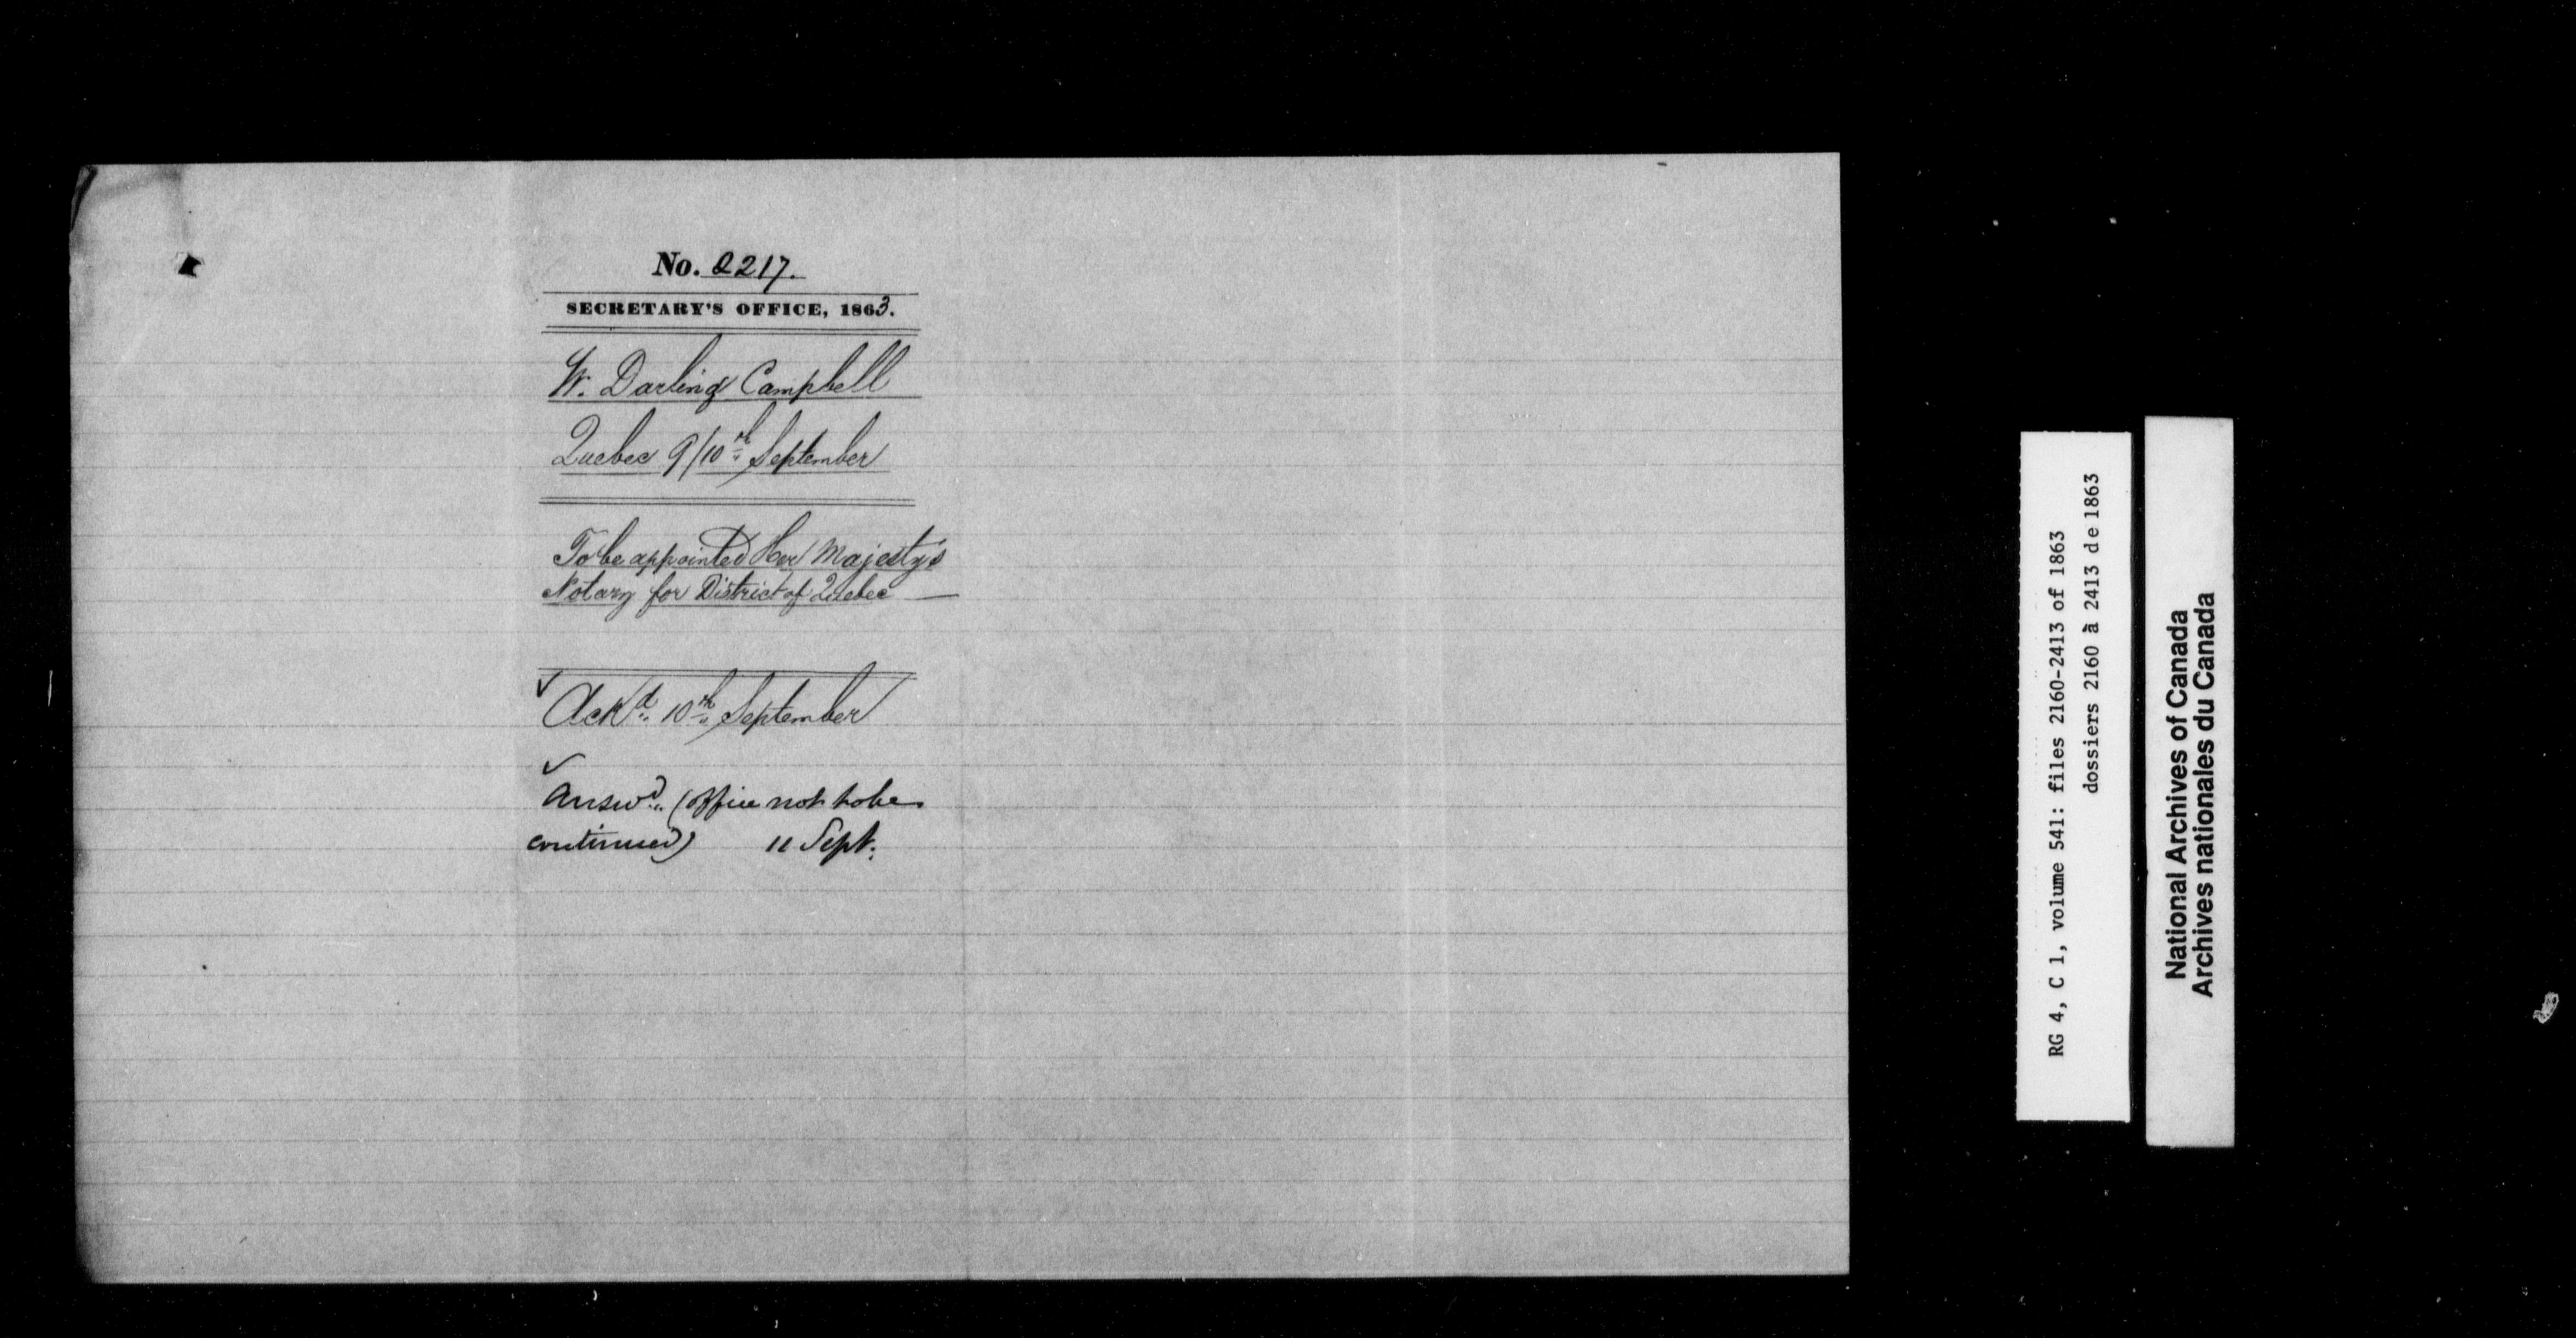 No. 2217.
SECRETARY'S OFFICE, 1863.
W. Darling Campbell
Quebec 9/10th September
To be appointed Her Majesty's
Notary for District of Quebec —
Ackd 10th September
Answd (office not to be
continued) 11 Sept.
RG 4, C 1, volume 541: files 2160-2413 of 1863
dossiers 2160 à 2413 de 1863
National Archives of Canada
Archives nationales du Canada